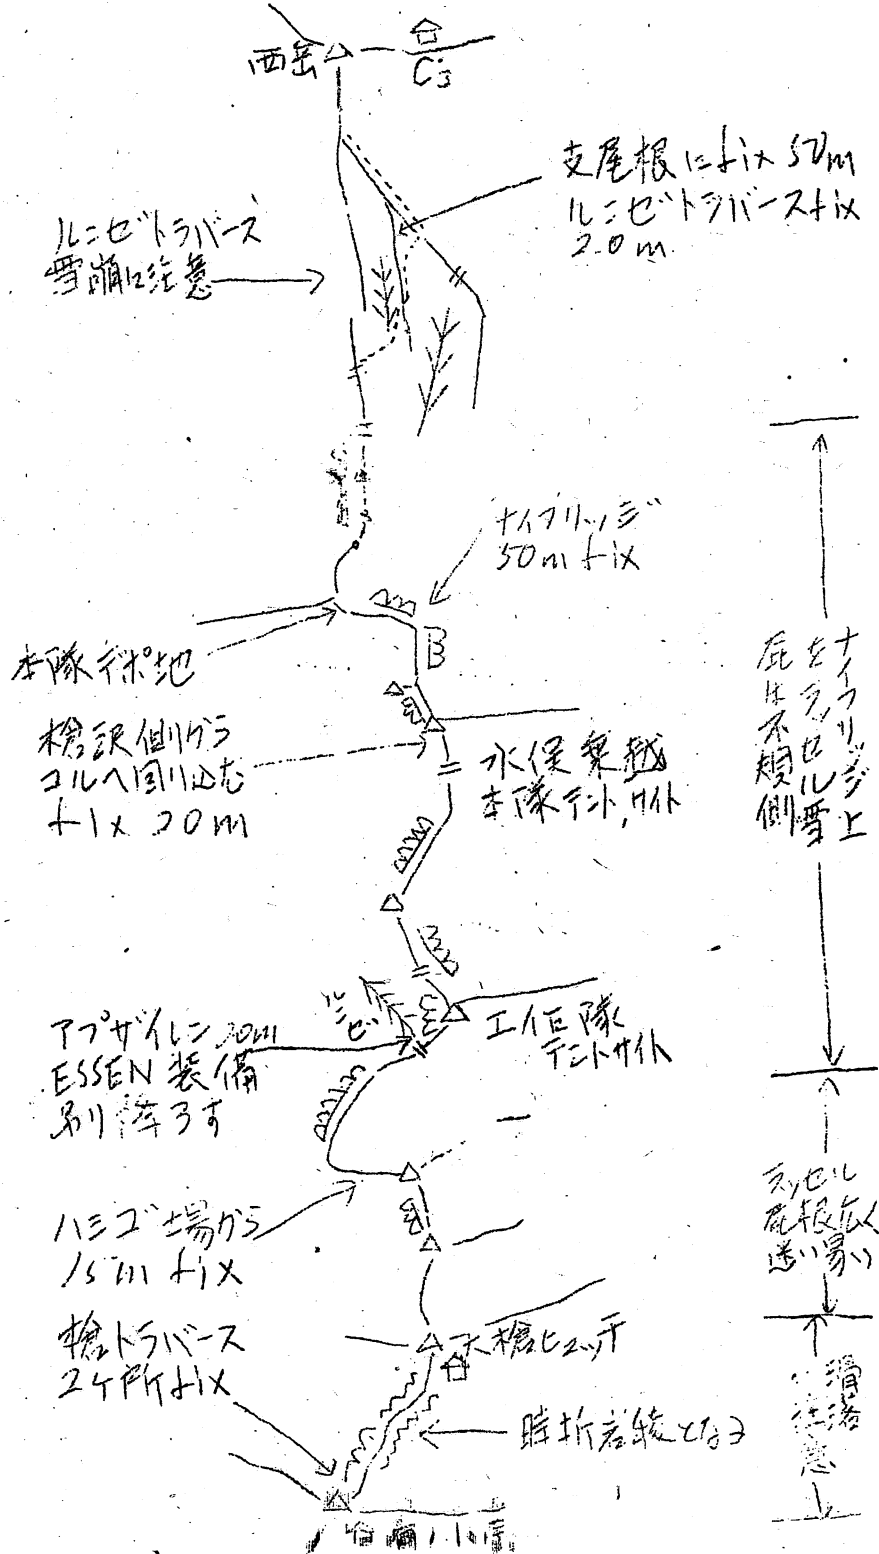 西岳
C3
支尾根にfix 50m
ルンゼトラバースfix
20m
ルンゼトラバース
雪崩に注意
ナイフリッジ
50m fix
本隊デポ地
槍沢側から
コルへ回り込む
fix 20m
水俣乗越
本隊テントサイト
ナイフリッジ上
をラッセル雪
庇は不規側
ルンゼ
アプザイレン20m
ESSEN装備
吊り降ろす
工作隊
テントサイト
ハシゴ場から
15m fix
ラッセル
尾根広く
迷い易い
槍トラバース
2ケ所fix
大槍ヒュッテ
時折岩稜となる
滑落
注意